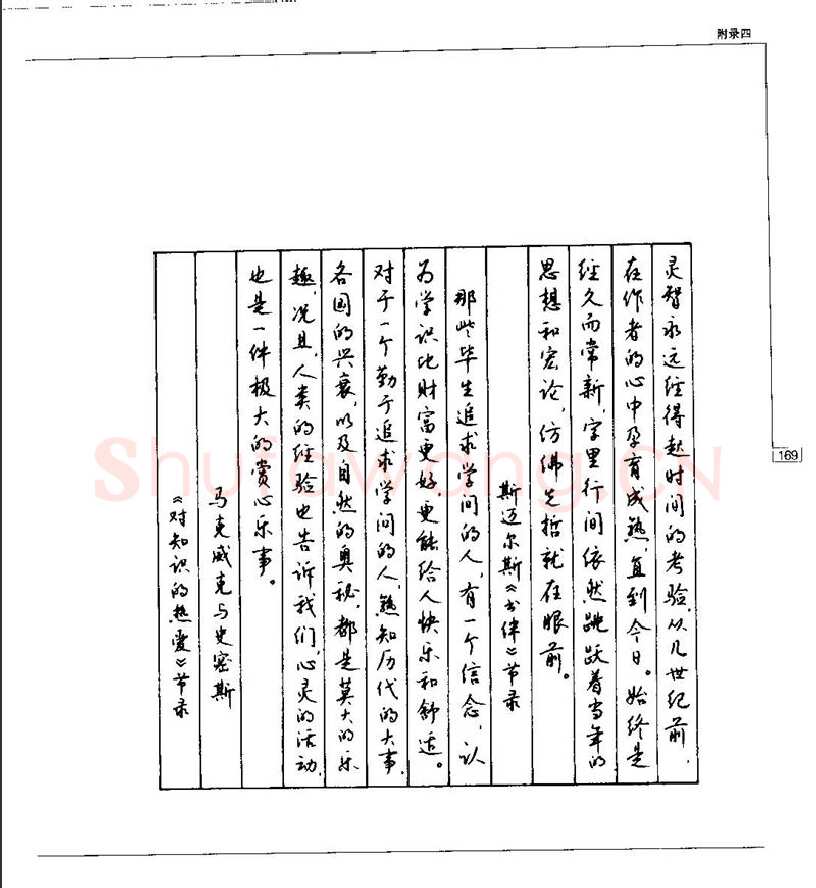 附录四
灵智永远经得起时间的考验，从几世纪前，
在作者的心中孕育成熟，直到今日。始终是
经久而常新，字里行间依然跳跃着当年的
思想和宏论，仿佛先哲就在眼前。
斯迈尔斯《书伴》节录
那些毕生追求学问的人，有一个信念，认
为学识比财富更好更能给人快乐和舒适。
对于一个勤于追求学问的人，熟知历代的大事，
各国的兴衰，以及自然的奥秘，都是莫大的乐
趣，况且，人类的经验也告诉我们，心灵的活动，
也是一件极大的赏心乐事。
马克威克与史密斯
《对知识的热爱》节录
169
Shufawang.CN